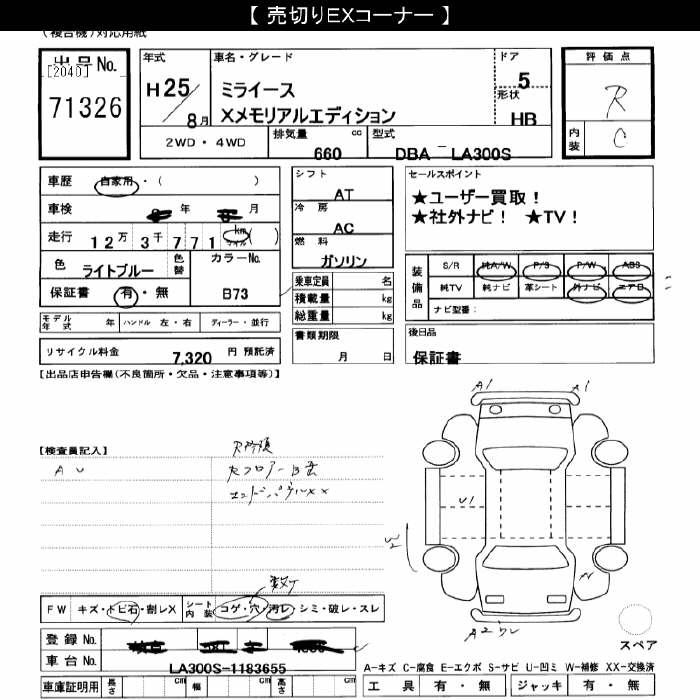 【 売切りEXコーナー 】
(複合機)対応用紙
出品No.
[2040]
71326
年式
H25/8月
車名・グレード
ミライース
Xメモリアルエディション
ドア
5
形状
HB
2WD・4WD
排気量 cc
660
型式
DBA － LA300S
評価点
R
内装
C
車歴 自家用・( )
車検 年 月
走行 12万3千771 km( )
色 ライトブルー
色替
カラーNo.
B73
保証書 有・無
モデル年式 年 ハンドル 左・右 ディーラー・並行
リサイクル料金 7,320 円 預託済
シフト
AT
冷房
AC
燃料
ガソリン
乗車定員 名
積載量 kg
総重量 kg
書類期限
月 日
セールスポイント
★ユーザー買取！
★社外ナビ！ ★TV！
装備品
S/R 純A/W P/S P/W ABS
純TV 純ナビ 革シート 外ナビ エアB
ナビ型番：
後日品
保証書
【出品店申告欄(不良箇所・欠品・注意事項等)】
【検査員記入】
A U
A1 A1
U1
W2
FW キズ・トビ石・割レX シート内装 コゲ・穴・汚レ・シミ・破レ・スレ
登録 No.
車台 No. LA300S-1183655
車庫証明用 長さ cm 幅 cm 高さ cm
スペア
A-キズ C-腐食 E-エクボ S-サビ U-凹ミ W-補修 XX-交換済
工具 有・無 ジャッキ 有・無